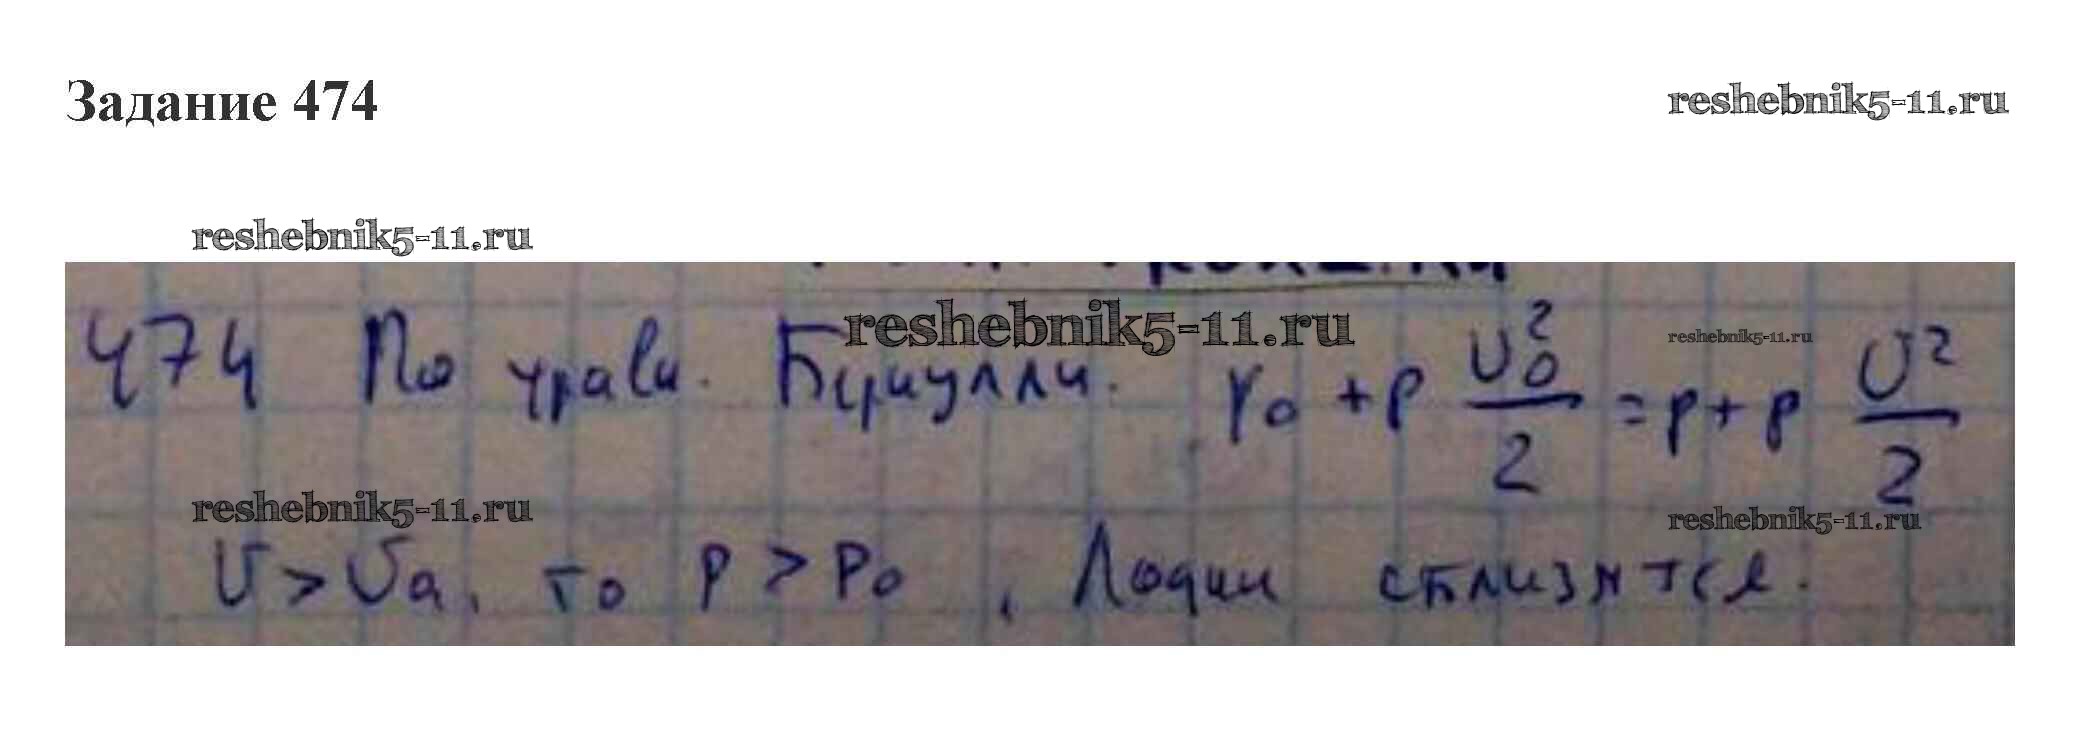 Задание 474
reshebnik5-11.ru
reshebnik5-11.ru
474 По уравн. Бернулли. p₀ + ρ υ₀²/2 = p + ρ υ²/2
reshebnik5-11.ru
reshebnik5-11.ru
reshebnik5-11.ru
reshebnik5-11.ru
υ > υ₀, то p > p₀, Лодки сблизятся.